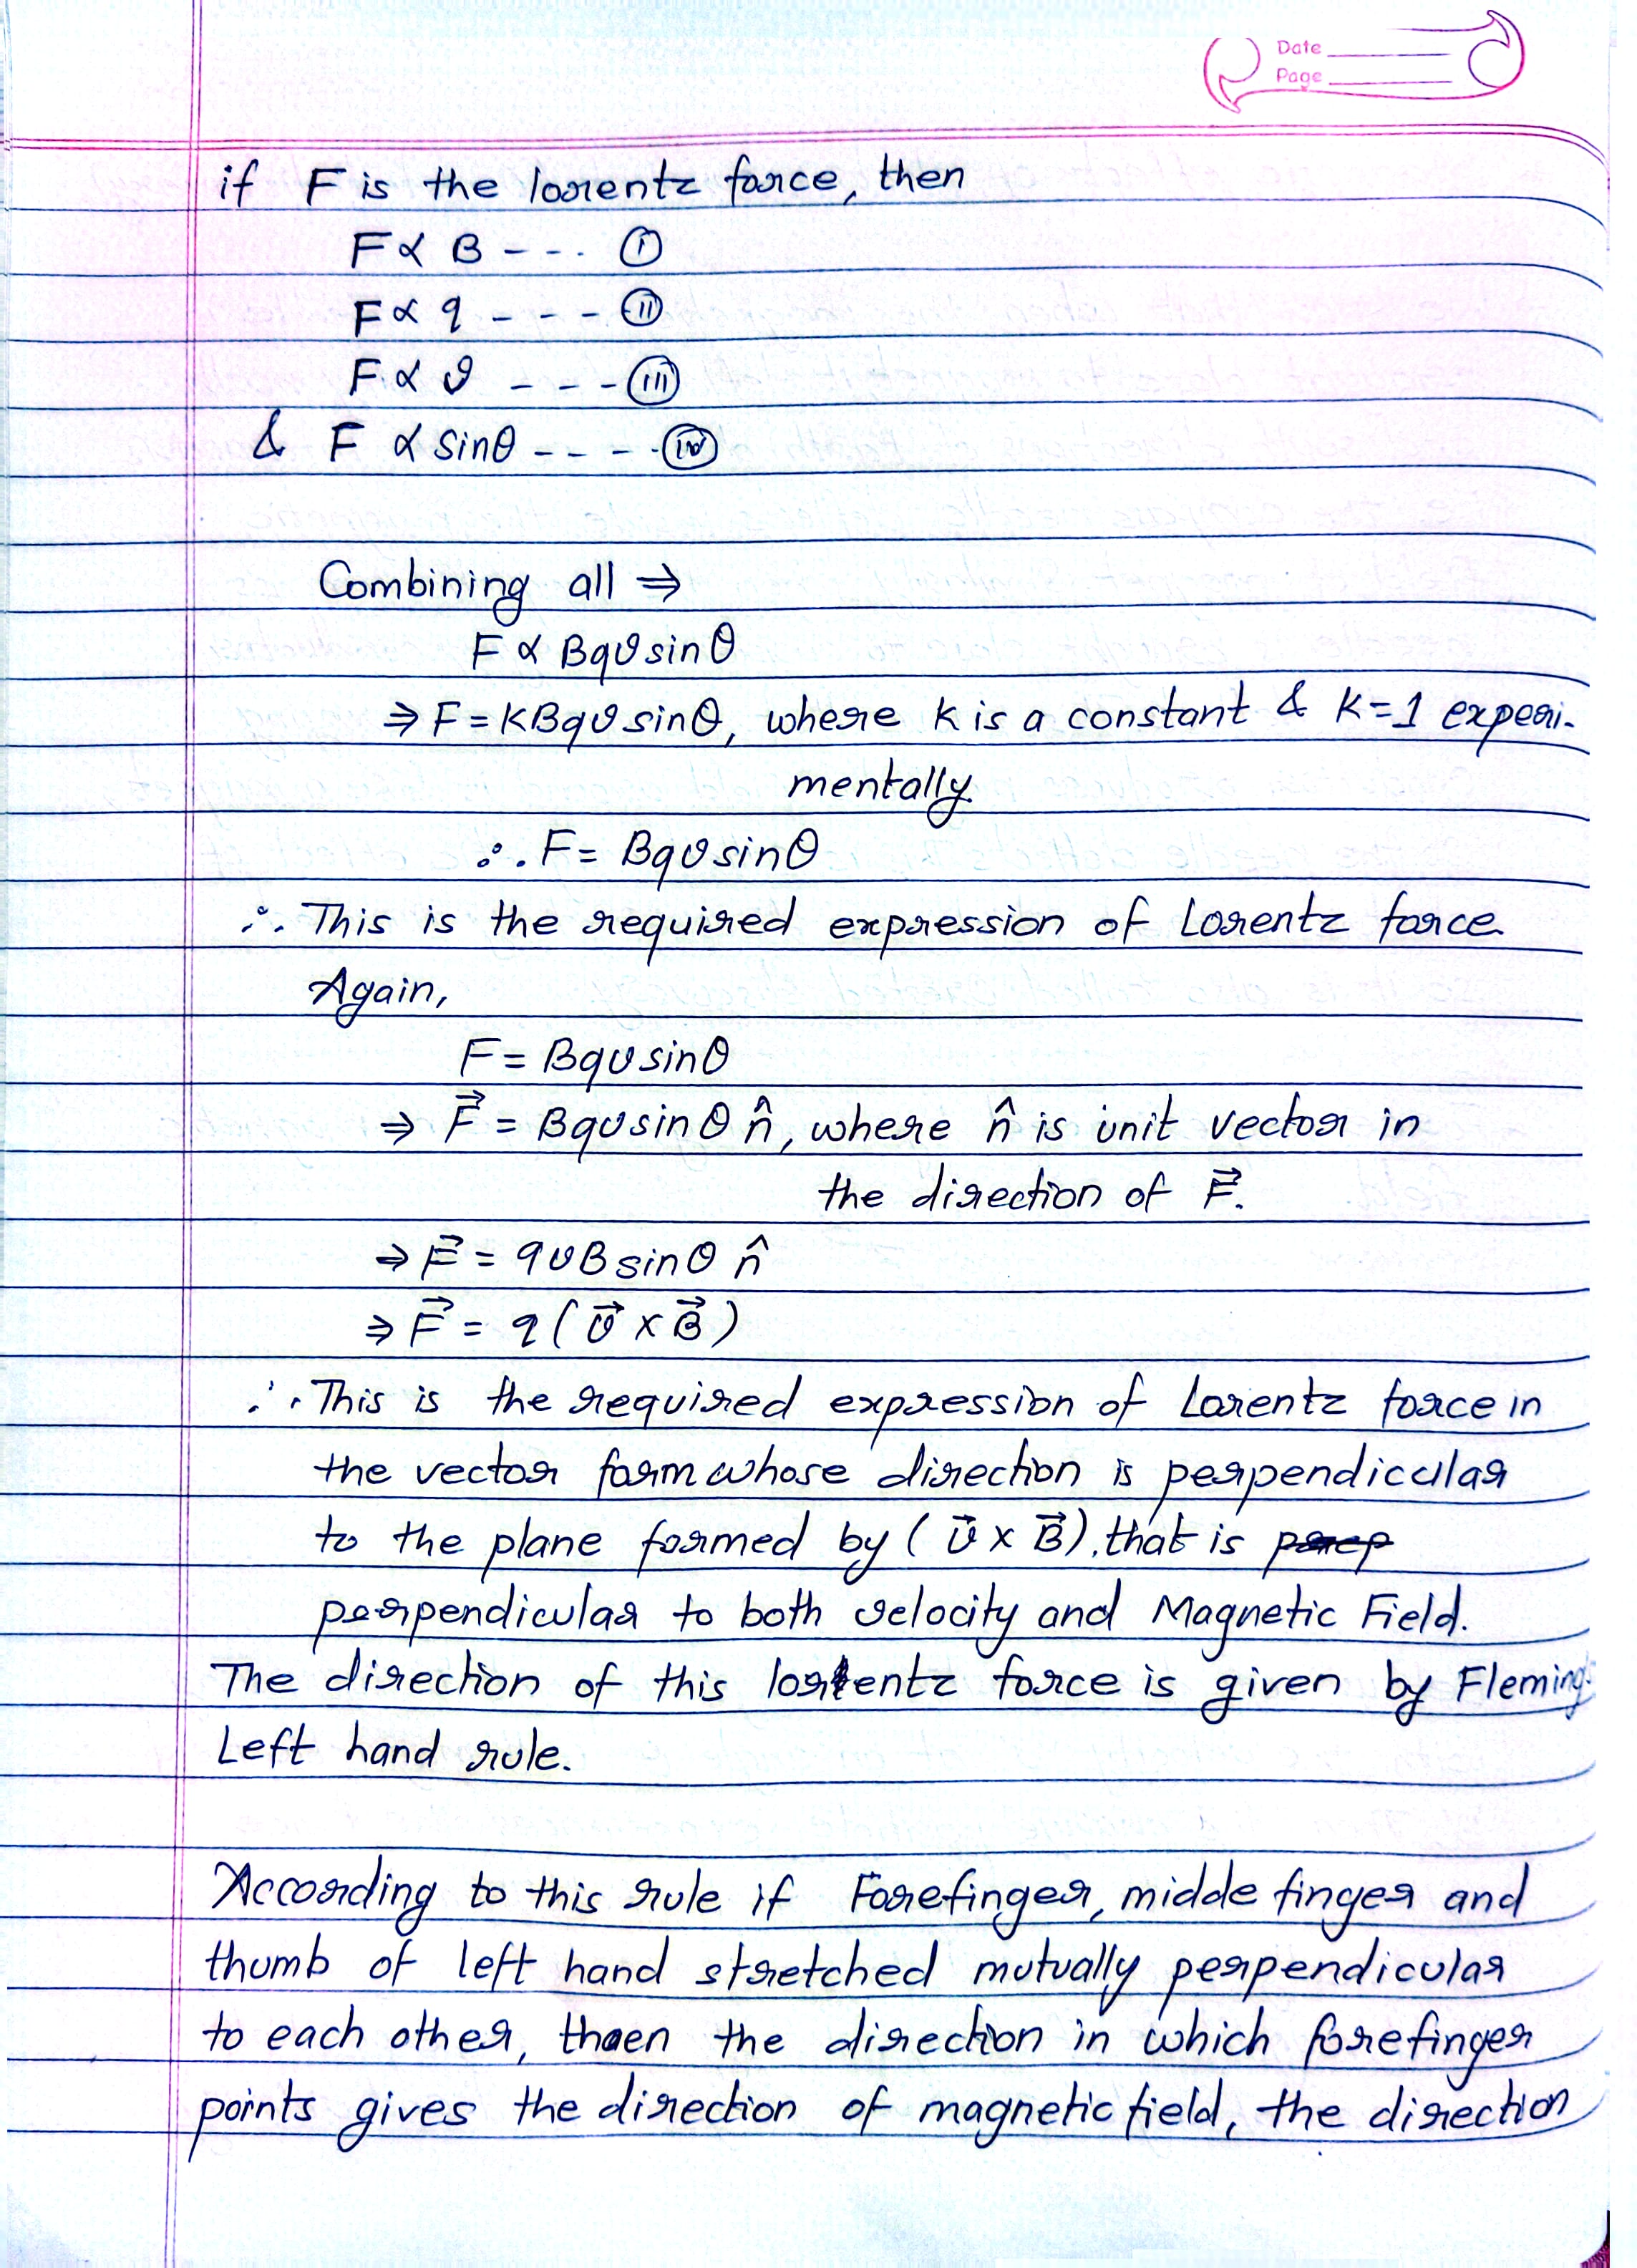 Date
Page
if F is the lorentz force, then
F ∝ B - - - (i)
F ∝ q - - - (ii)
F ∝ v - - - (iii)
& F ∝ sinθ - - - - (iv)
Combining all ⇒
F ∝ Bqv sinθ
⇒ F = KBqv sinθ, where K is a constant & K=1 experi-
mentally
∴ F = Bqv sinθ
∴ This is the required expression of Lorentz force
Again,
F = Bqv sinθ
⇒ F⃗ = Bqv sinθ n̂, where n̂ is unit vector in
the direction of F⃗.
⇒ F⃗ = qvB sinθ n̂
⇒ F⃗ = q (v⃗ × B⃗)
∴ This is the required expression of Lorentz force in
the vector form whose direction is perpendicular
to the plane formed by (v⃗ × B⃗), that is
perpendicular to both velocity and Magnetic Field.
The direction of this lorentz force is given by Fleming's
Left hand rule.
According to this rule if Forefinger, midde finger and
thumb of left hand stretched mutually perpendicular
to each other, then the direction in which forefinger
points gives the direction of magnetic field, the direction